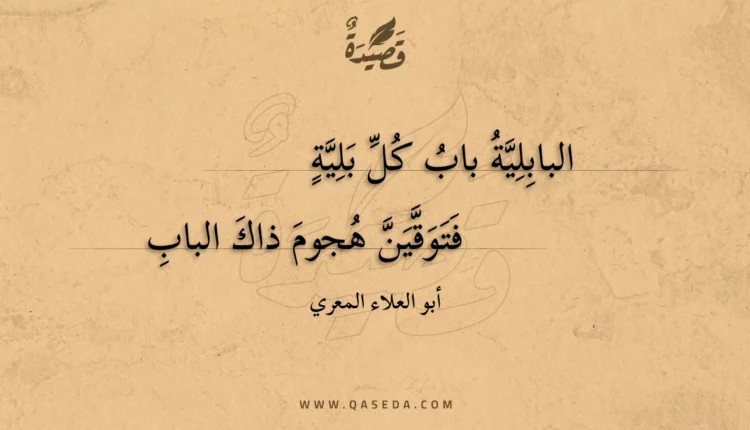 قَصِيدَةٌ
البابِلِيَّةُ بابُ كُلِّ بَلِيَّةٍ
فَتَوَقَّيَنَّ هُجومَ ذاكَ البابِ
أبو العلاء المعري
WWW.QASEDA.COM